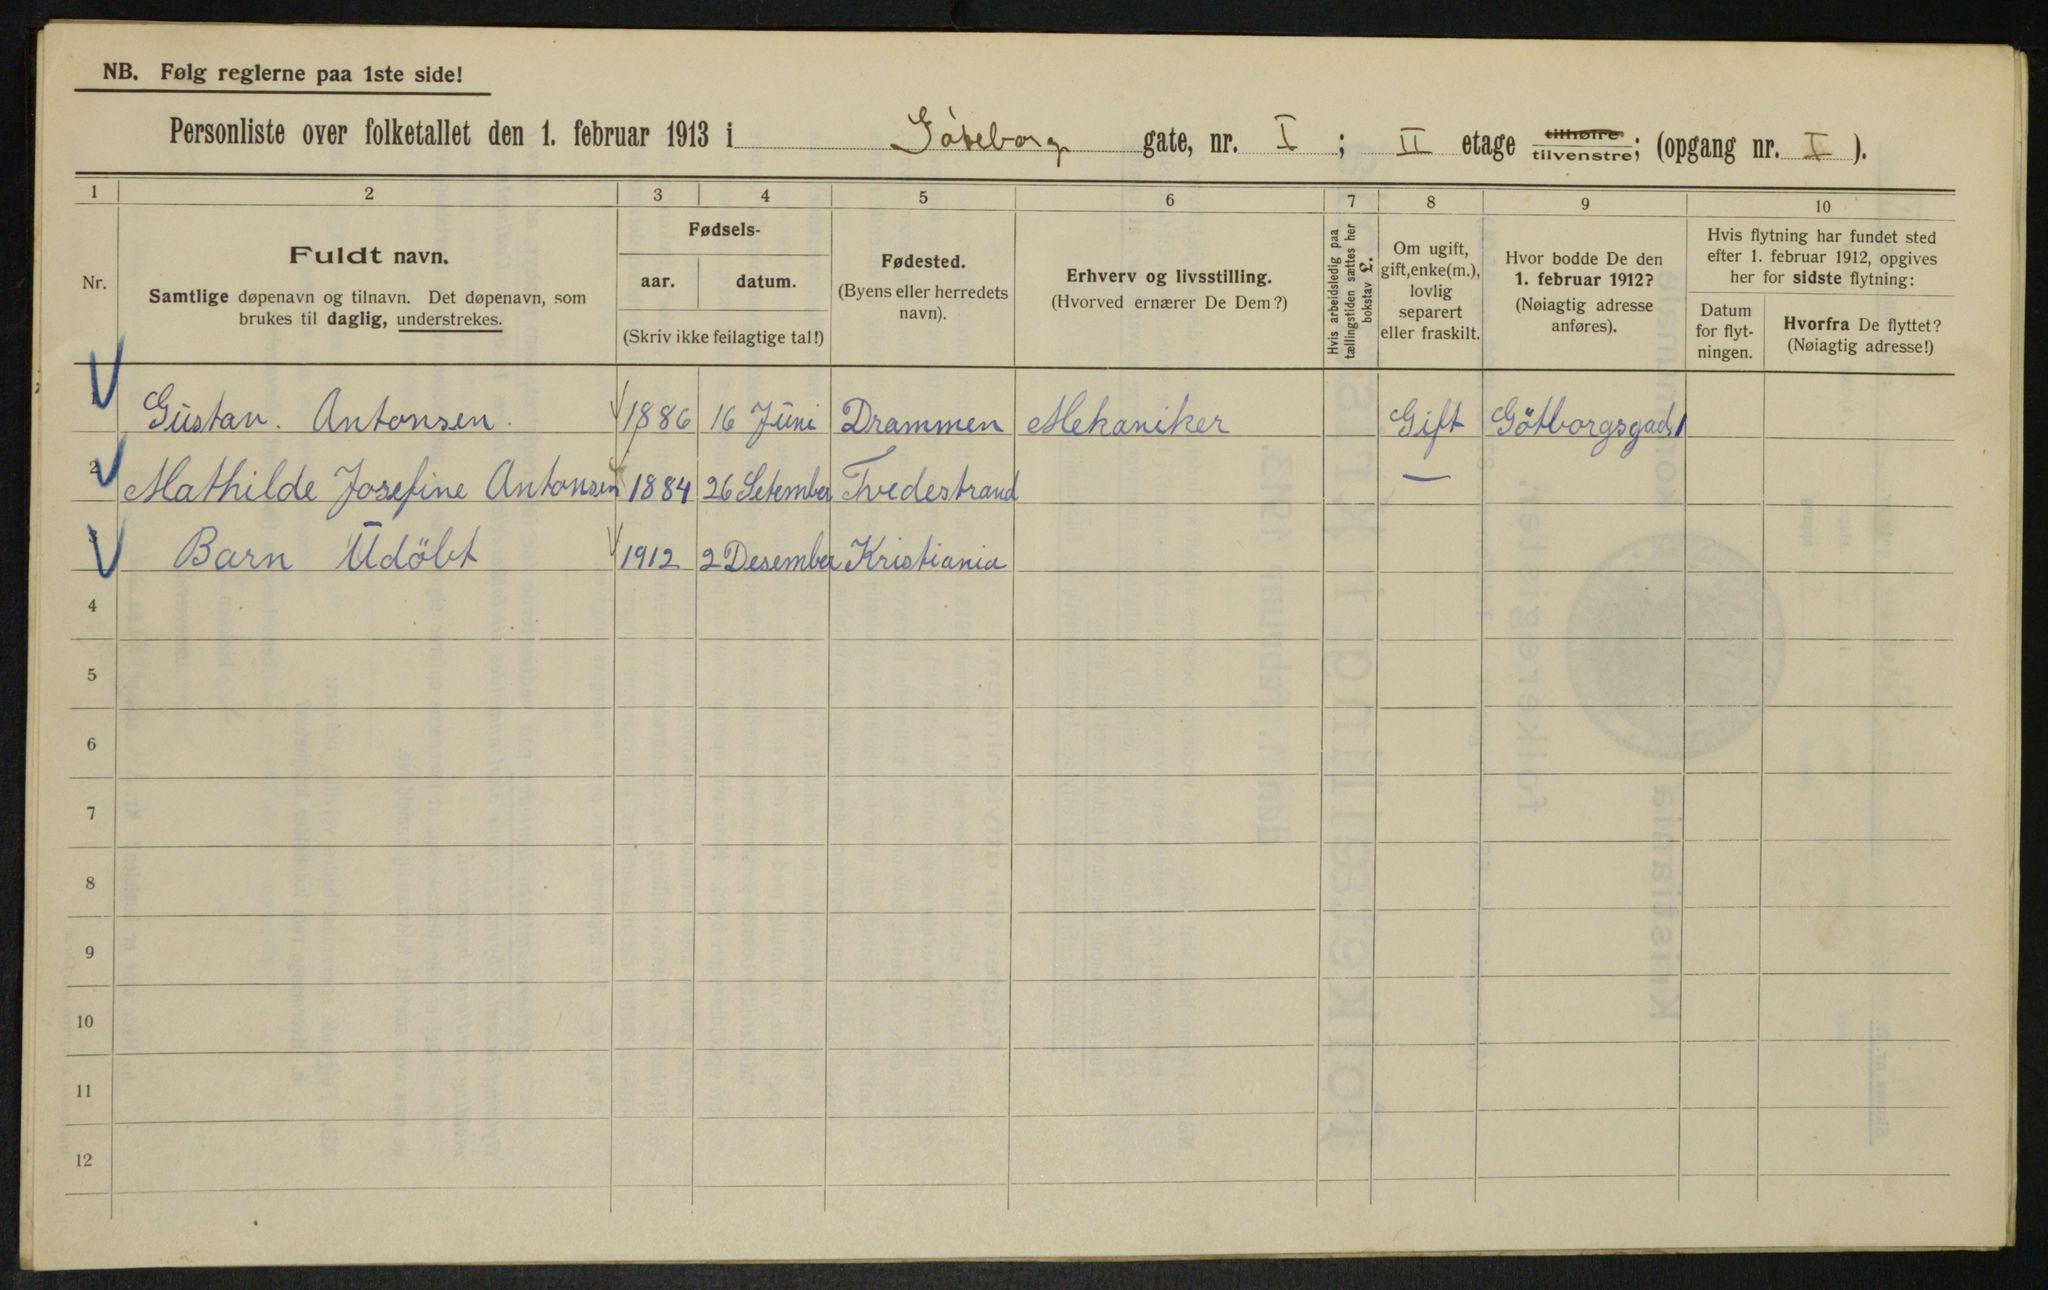 NB. Følg reglerne paa 1ste side!
Personliste over folketallet den 1. februar 1913 i Göteborg gate, nr. I ; II etage tilhøire tilvenstre; (opgang nr. I ).
1 2 3 4 5 6 7 8 9 10
Nr.
Fuldt navn.
Samtlige døpenavn og tilnavn. Det døpenavn, som
brukes til daglig, understrekes.
Fødsels-
aar. datum.
(Skriv ikke feilagtige tal!)
Fødested.
(Byens eller herredets
navn).
Erhverv og livsstilling.
(Hvorved ernærer De Dem?)
Hvis arbeidsledig paa
tællingstiden sættes her
bokstav £.
Om ugift,
gift, enke(m.),
lovlig
separert
eller fraskilt.
Hvor bodde De den
1. februar 1912?
(Nøiagtig adresse
anføres).
Hvis flytning har fundet sted
efter 1. februar 1912, opgives
her for sidste flytning:
Datum
for flyt-
ningen.
Hvorfra De flyttet?
(Nøiagtig adresse!)
1 Gustav. Antonsen. 1886 16 Juni Drammen Mekaniker Gift Götborgsgad 1
2 Mathilde Josefine Antonsen 1884 26 Setember Tvedestrand —
3 Barn Udöbt 1912 2 Desember Kristiania
4
5
6
7
8
9
10
11
12